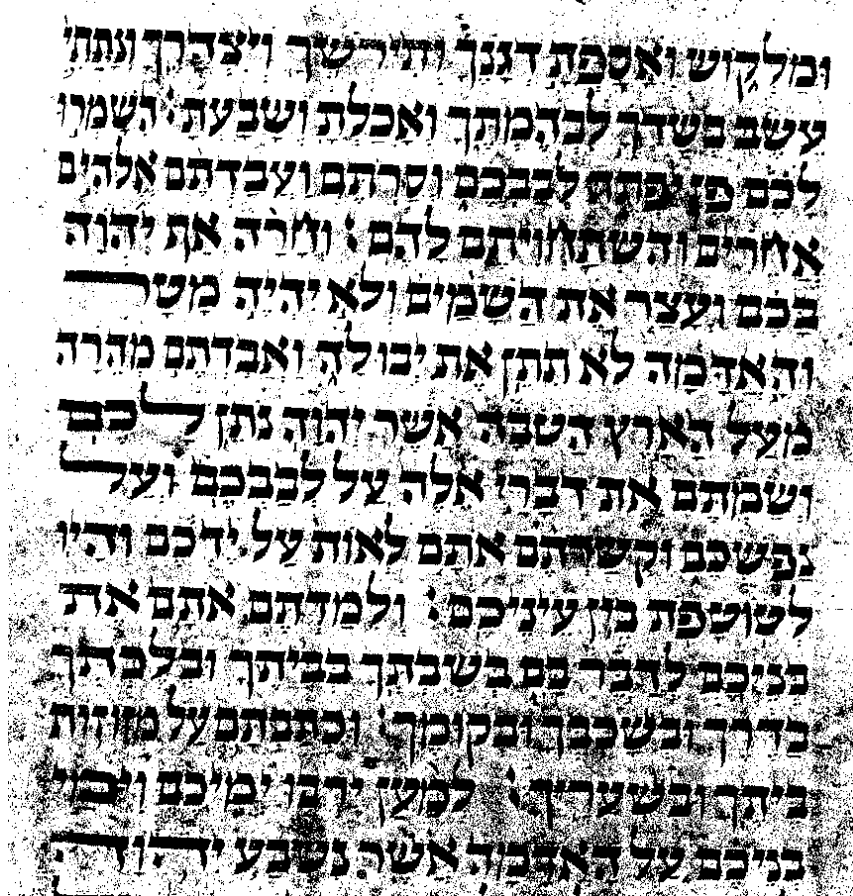 ומלקוש ואספת דגנך ותירשך ויצהרך ונתתי
עשב בשדך לבהמתך ואכלת ושבעת׃ השמרו
לכם פן יפתה לבבכם וסרתם ועבדתם אלהים
אחרים והשתחויתם להם׃ וחרה אף יהוה
בכם ועצר את השמים ולא יהיה מטר
והאדמה לא תתן את יבולה ואבדתם מהרה
מעל הארץ הטבה אשר יהוה נתן לכם
ושמתם את דברי אלה על לבבכם ועל
נפשכם וקשרתם אתם לאות על ידכם והיו
לטוטפת בין עיניכם׃ ולמדתם אתם את
בניכם לדבר בם בשבתך בביתך ובלכתך
בדרך ובשכבך ובקומך׃ וכתבתם על מזוזות
ביתך ובשעריך׃ למען ירבו ימיכם וימי
בניכם על האדמה אשר נשבע יהוה